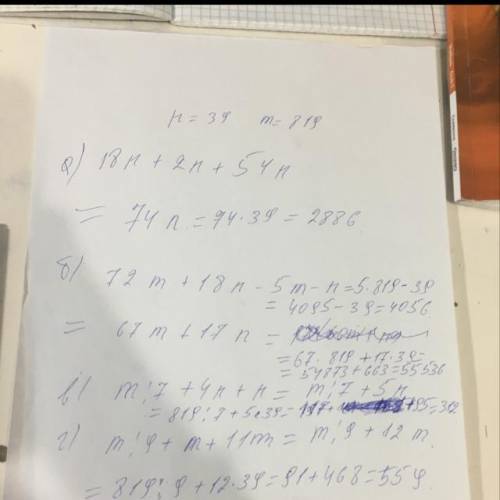 n = 39 m = 819
а) 18n + 2n + 54n
= 74n = 74·39 = 2886
б) 72m + 18n - 5m - n = 5·819 - 39
= 4095 - 39 = 4056
= 67m + 17n =
= 67·819 + 17·39 =
= 54873 + 663 = 55536
в) m:7 + 4n + n = m:7 + 5n
= 819:7 + 5·39 = 117 + 195 = 312
г) m:9 + m + 11m = m:9 + 12m
= 819:9 + 12·39 = 91 + 468 = 559